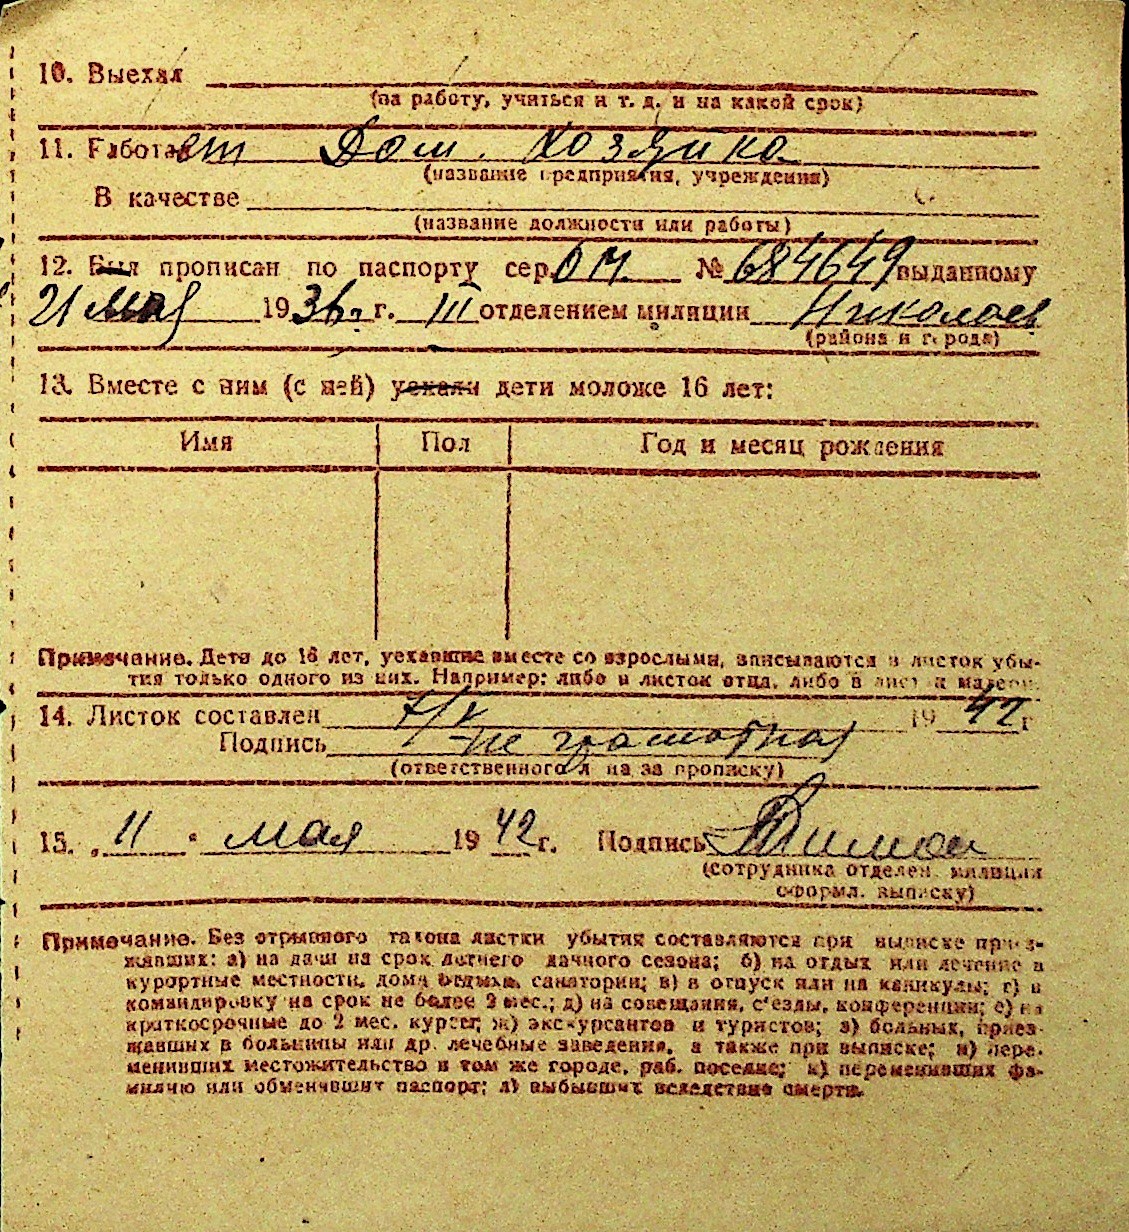 10. Выехал
(на работу, учиться и т. д. и на какой срок)
11. Работает Дом. Хозяйка
(название предприятия, учреждения)
В качестве
(название должности или работы)
12. Был прописан по паспорту сер. ОМ. № 684649 выданному
21 мая 1936 г. III отделением милиции Николаев
(района и города)
13. Вместе с ним (с ней) уехали дети моложе 16 лет:
Имя Пол Год и месяц рождения
Примечание. Дети до 16 лет, уехавшие вместе со взрослыми, вписываются в листок убы-
тия только одного из них. Например: либо в листок отца, либо в листок матери.
14. Листок составлен 7/V 1942 г
Подпись не грамотная
(ответственного л на за прописку)
15. „11" мая 1942 г. Подпись
(сотрудника отделен. милиции
оформл. выписку)
Примечание. Без отрывного талона листки убытия составляются при выписке приез-
жавших: а) на дачи на срок летнего дачного сезона; б) на отдых или лечение в
курортные местности, дома отдыха, санатории; в) в отпуск или на каникулы; г) в
командировку на срок не более 2 мес.; д) на совещания, с'езды, конференции; е) на
краткосрочные до 2 мес. курсы; ж) экскурсантов и туристов; з) больных, приез-
жавших в больницы или др. лечебные заведения, а также при выписке; и) пере-
менивших местожительство в том же городе, раб. поселке; к) переменивших фа-
милию или обменивших паспорт; л) выбывших вследствие смерти.